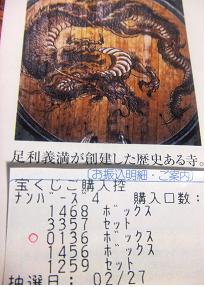 足利義満が創建した歴史ある寺。
(お振込明細・ご案内)
宝くじご購入控
ナンバーズ4 購入口数:
1468 ボックス
3357 セット
0136 ボックス
1456 ボックス
1259 セット
抽選日: 02/27